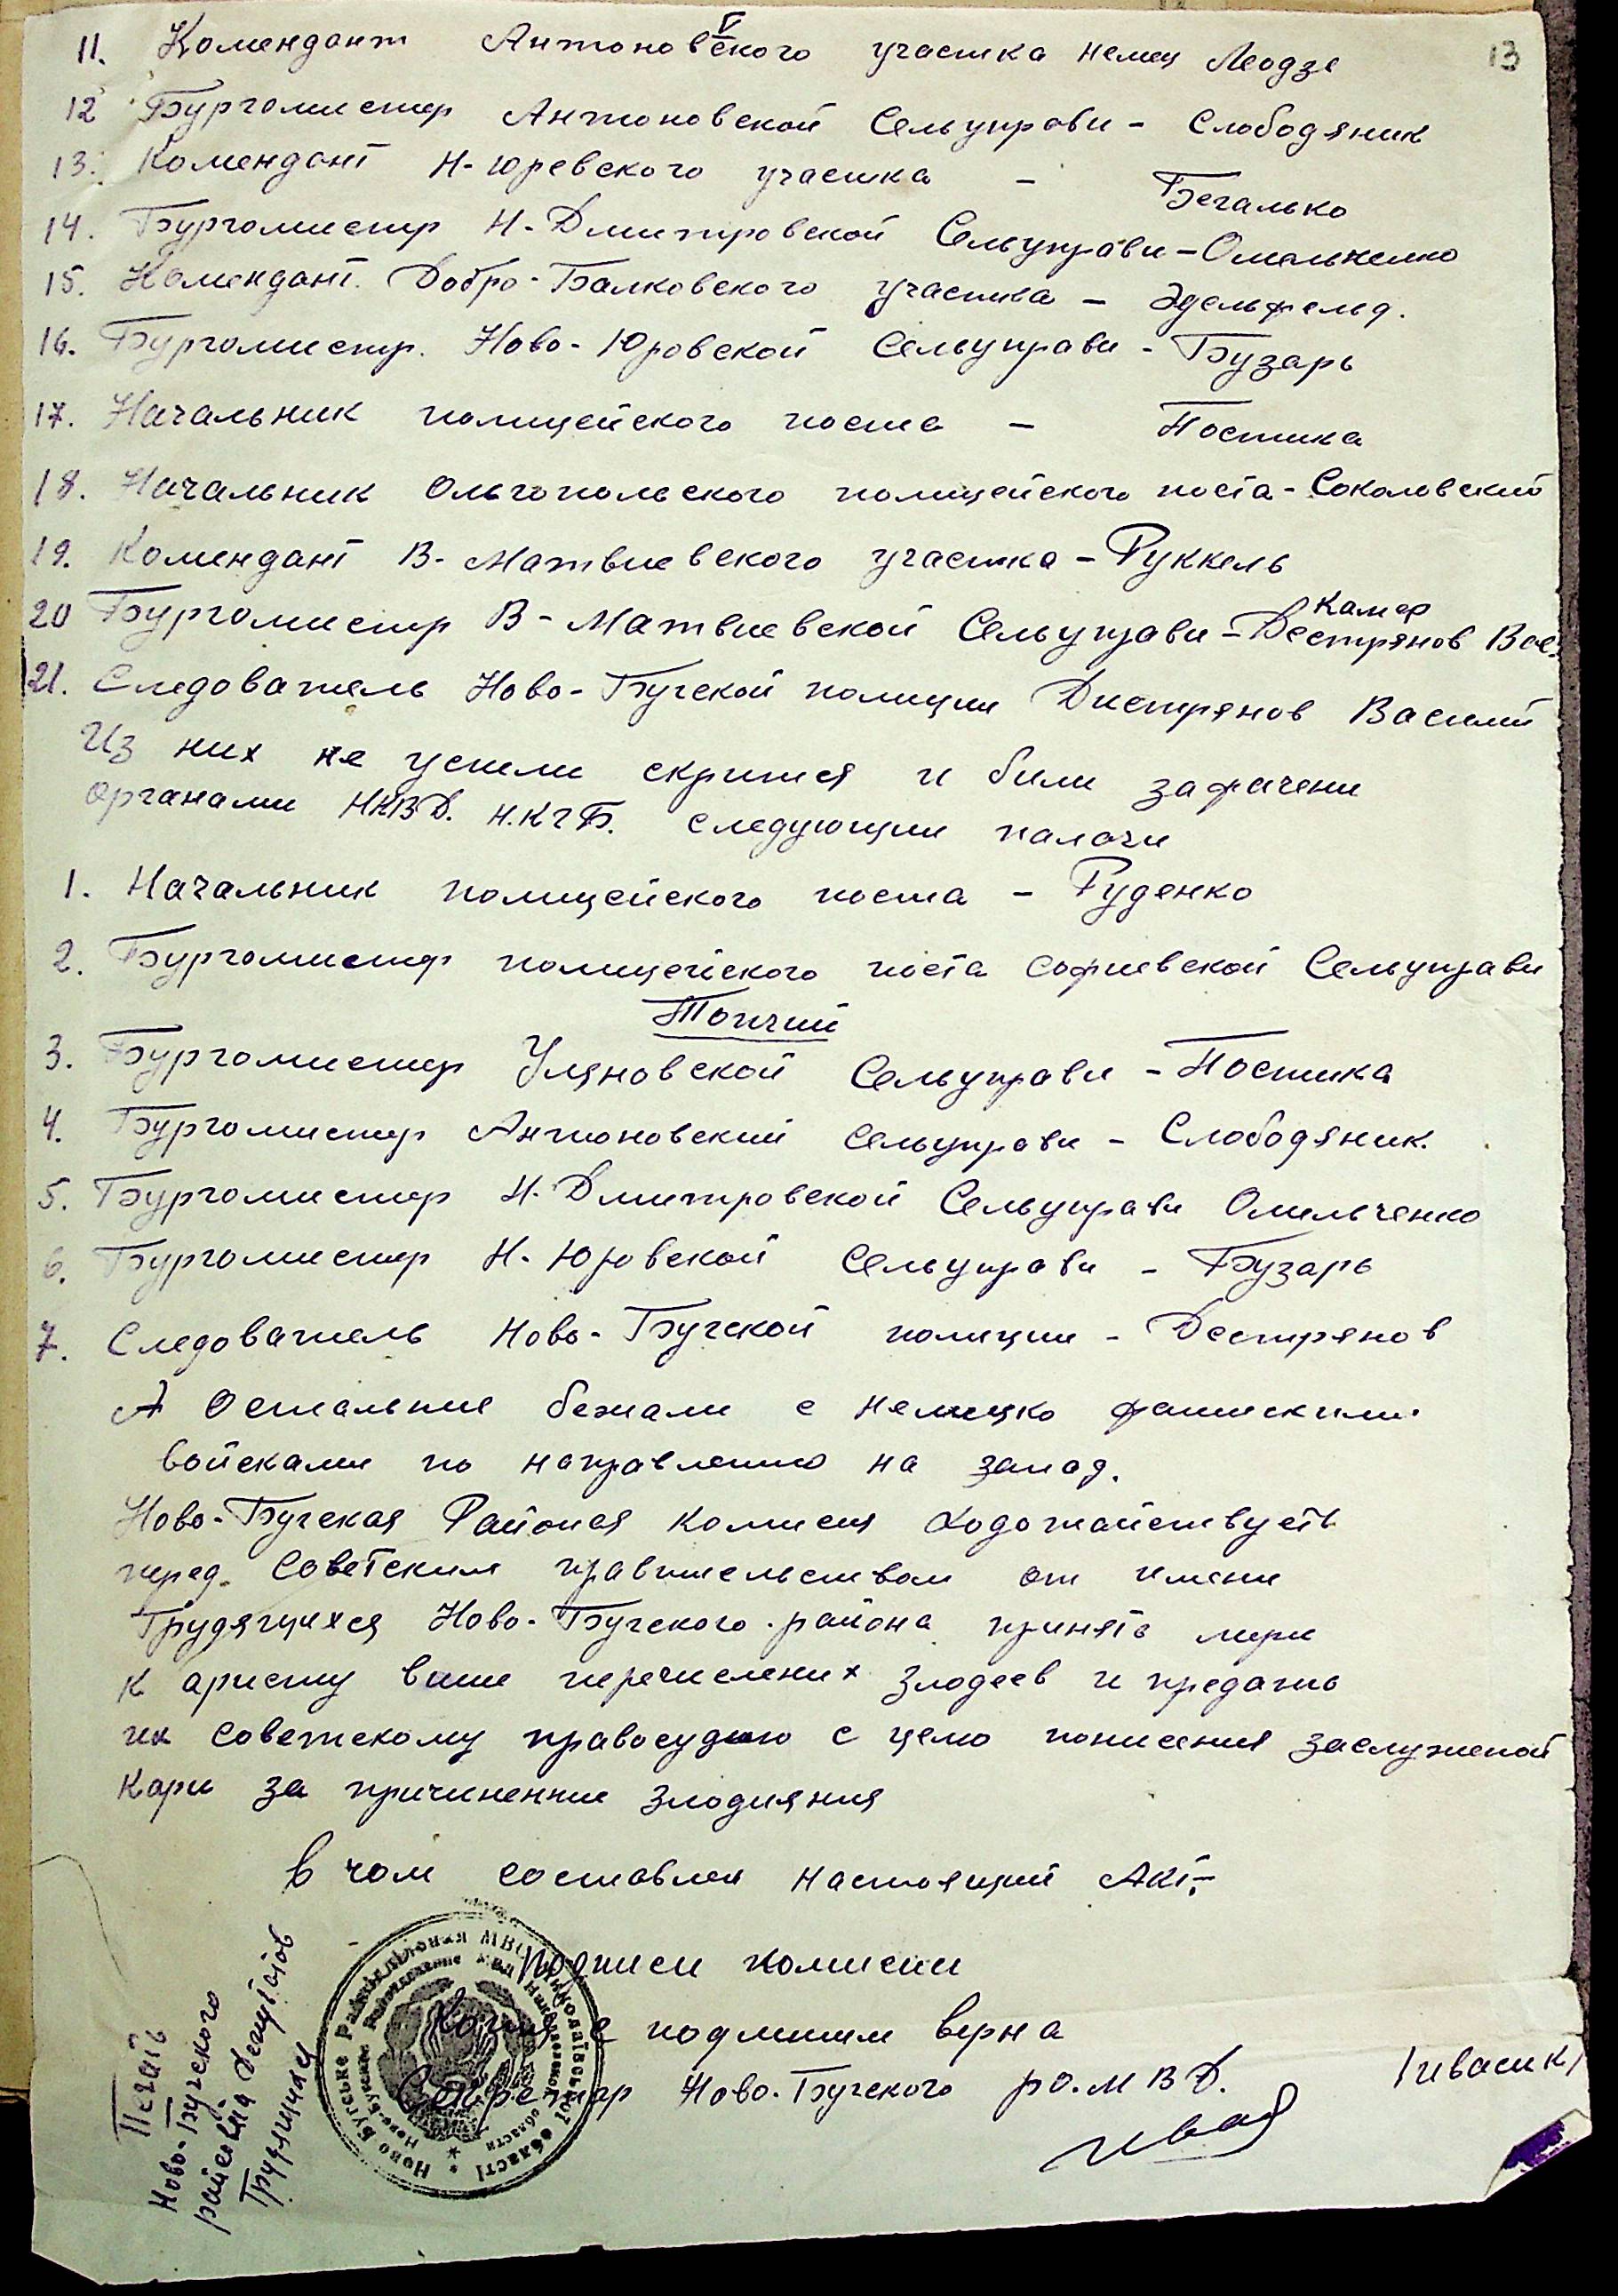 13
11. Комендант Антоновского участка немец Леодзе
12 Бургомистр Антоновской Сельуправи - Слободяник
13. Комендант Н-Юревского участка - Бегалько
14. Бургомистр Н-Дмитровской Сельуправи - Омельченко
15. Комендант Добро-Балковского участка - Эдельфельд.
16. Бургомистр. Ново-Юровской Сельуправи - Бузарь
17. Начальник полицейского поста - Постика
18. Начальник Ольгопольского полицейского поста - Соколовский
19. Комендант В-Матвиевского участка - Руккель
Камер
20 Бургомистр В-Матвиевской Сельуправи - Дестрянов Вас.
21. Следователь Ново-Бугской полиции Дистрянов Василий
Из них не успели скрится и били зафачени
органами НКВД. Н.КГБ. следующии палачи
1. Начальник полицейского поста - Руденко
2. Бургомистер полицейского поста Софиевской Сельуправи
Топчий
3. Бургомистер Уляновской Сельуправи - Постика
4. Бургомистер Антоновский Сельуправи - Слободяник.
5. Бургомистер Н-Дмитровской Сельуправи Омильченко
6. Бургомистер Н-Юровской Сельуправи - Бузарь
7. Следователь Ново-Бугской полиции - Дестрянов
А остальние бежали с немецко фашискими
войсками по направлению на запад.
Ново-Бугская Районая комисия ходотайствуеть
перед Советским правительством от имени
Трудящихся Ново-Бугского района принять мери
к аристу више перечислених злодеев и предать
их советскому правосудию с целю понисения заслуженой
кари за причиненние злодияния
В чом составлен настоящий Акт.
Подписи комисии
Копия с подлиним верна
Секретар Ново-Бугского ро.МВД. /Ивасик/
Печать
Ново-Бугского
райсовета депутатов
Трудящихся
Ново Бугське Райвідділення МВС Миколаївської області
Ново-Бугское Райотделение МВД Николаевской области